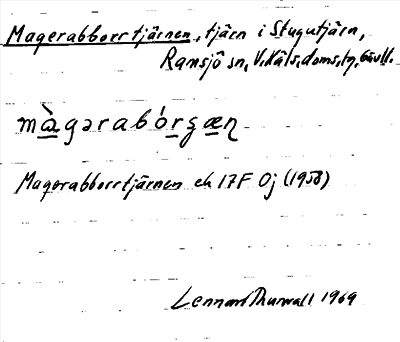 Magerabborrtjärnen, tjärn i Stugutjärn,
Ramsjö sn, V.Häls.doms.tg, Gävll.
màgərabórʂæn
Magerabborrtjärnen ek 17F 0j (1958)
Lennart Thurwall 1969